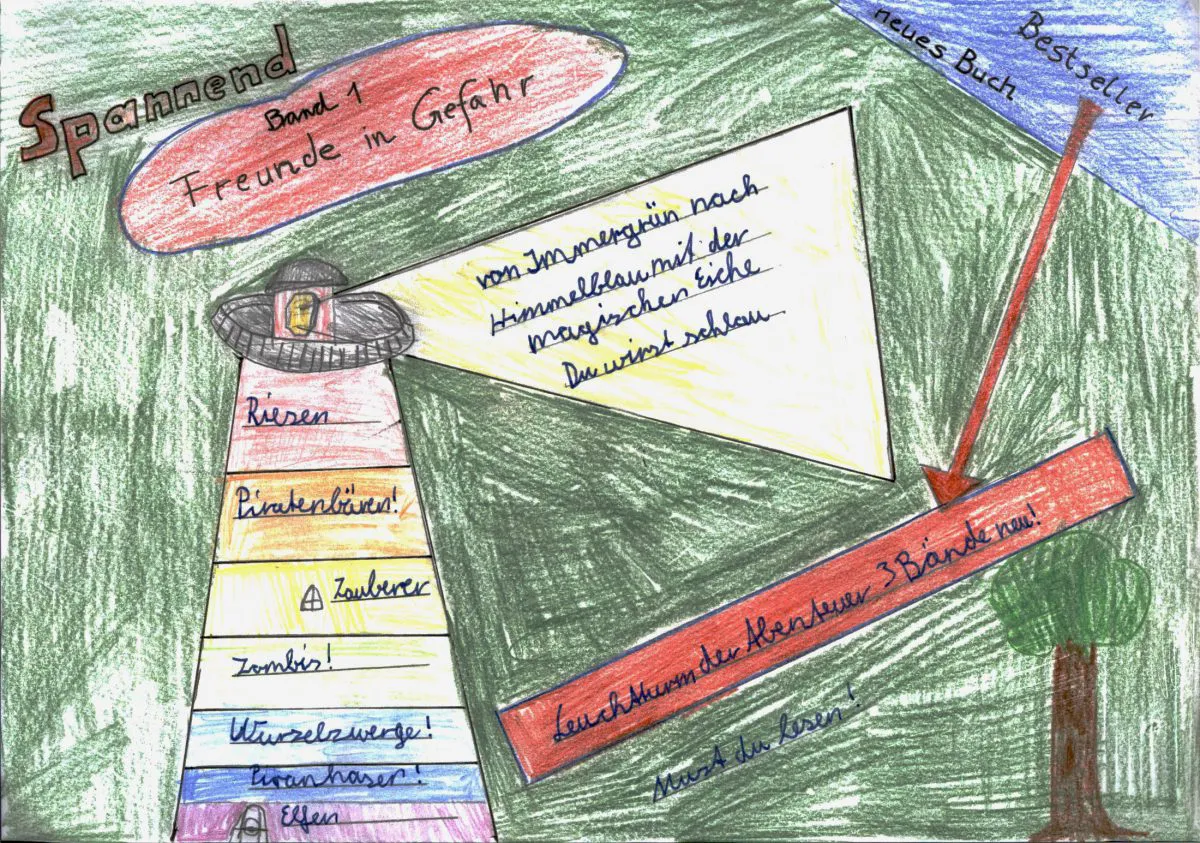 Spannend
Band 1
Freunde in Gefahr
Bestseller
neues Buch
von Immergrün nach
Himmelblau mit der
magischen Eiche
Du wirst schlau
Riesen
Piratenbären!
Zauberer
Zombis!
Wurzelzwerge!
Piranhasen!
Elfen
Leuchtturm der Abenteuer 3 Bände neu!
Must du lesen!